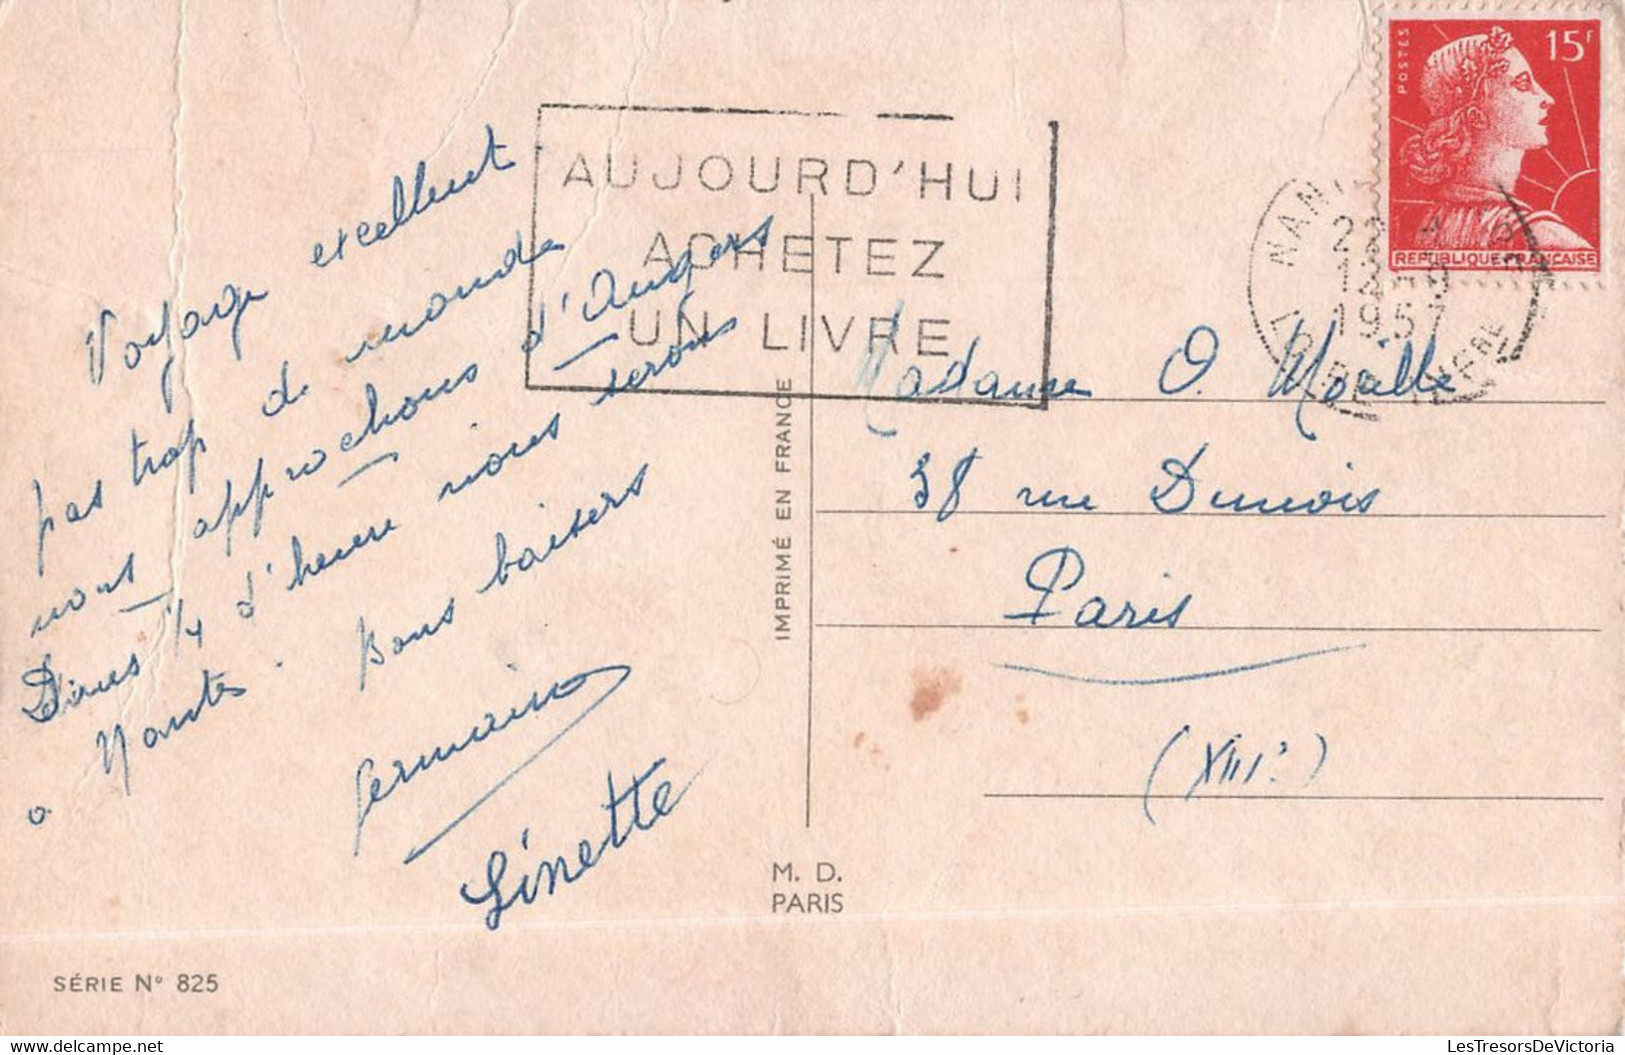 Voyage excellent
pas trop de monde
nous approchons d'Angers
Dans 1/4 d'heure nous serons
à Nantes. Bons baisers
Germaine
Linette
SÉRIE N° 825
AUJOURD'HUI
ACHETEZ
UN LIVRE
IMPRIMÉ EN FRANCE
M. D.
PARIS
POSTES
15F
REPUBLIQUE FRANÇAISE
NAN
22
1957
LOIRE INFRE
Madame O.
38 rue Dunois
Paris
(XIIIe)
LesTresorsDeVictoria.com
LesTresorsDeVictoria